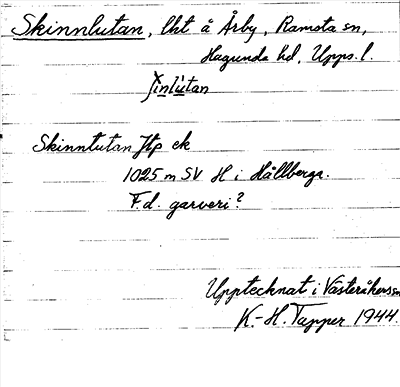 Skinnlutan, lht å Årby, Ramsta sn,
Hagunda hd, Upps. l.
Skinnlutan Htp ek
1025 m SV H i Hällberga.
F.d. garveri?
Upptecknat i Västeråkers sn
K.-H. Tapper 1944.